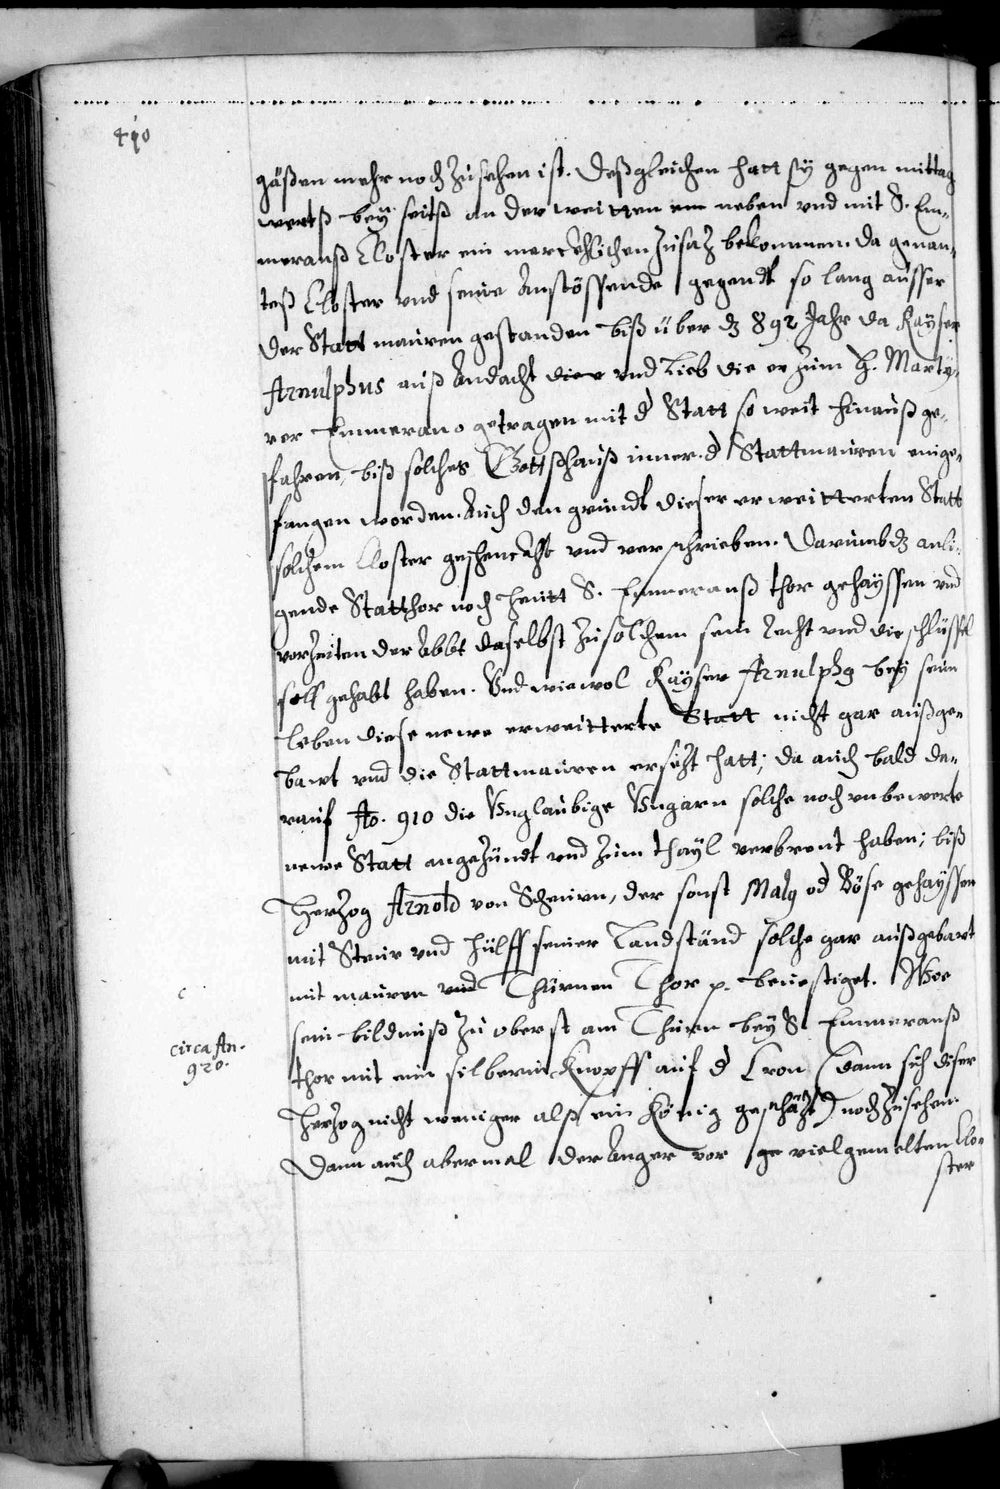 490
gäßen mehr noch zusehen ist. Deßgleichen hatt sÿ gegen mittag
wertß beÿ seitß an der weitten ein neben vnd mit S. Em-
meranß Closter ein mercklichen Zusaz bekommen. Da genan-
teß Closter vnd seine Anstössende gegendt so lang ausser
der Statt mauren gestanden biß über dz 892 Jahr da Kaÿser
Arnulphus auß Andacht vnd Lieb die er zum H. Martÿ-
rer Emmerano getragen mit d Statt so weit hinauß ge-
fahren, biß solches Gottßhauß inner d Stattmauren einge-
fangen worden. Auch den grundt dieser erweitterten Statt
solchem Closter geschenckht vnd verschrieben. Darumb dz anli-
gende Statthor noch heutt S. Emmeranß thor gehaÿssen vnd
vorzeiten der Abbt daselbst zu solchem sein recht vnd die schlüssel
soll gehabt haben. Vnd wiewol Kaÿser Arnulphg beÿ seim
leben diese newe erweitterte Statt nicht gar außge-
bawt vnd die Stattmauren erhöht hatt; da auch bald da-
rauf Ao. 910 die Vnglaubige Vngarn solche noch vnbewerte
newe Statt angezündt vnd zum thaÿl verbrent haben; biß
Herzog Arnold von Scheurn, der sonst Malg od Böse gehaÿssen
mit Steur vnd hülff seiner Landständ solche gar außgebawt
mit mauren vnd Thürnen Thor p. beuestiget. Wie
sein bildniß zu oberst am Thurn beÿ S. Emmeranß
circa An.
920.
thor mit eim silberin Knopff auf d Cron (dann sich diser
Herzog nicht weniger alß ein König geschäzt) noch zusehen.
Dann auch abermal der Anger vor ge vielgemelten Clo-
ster